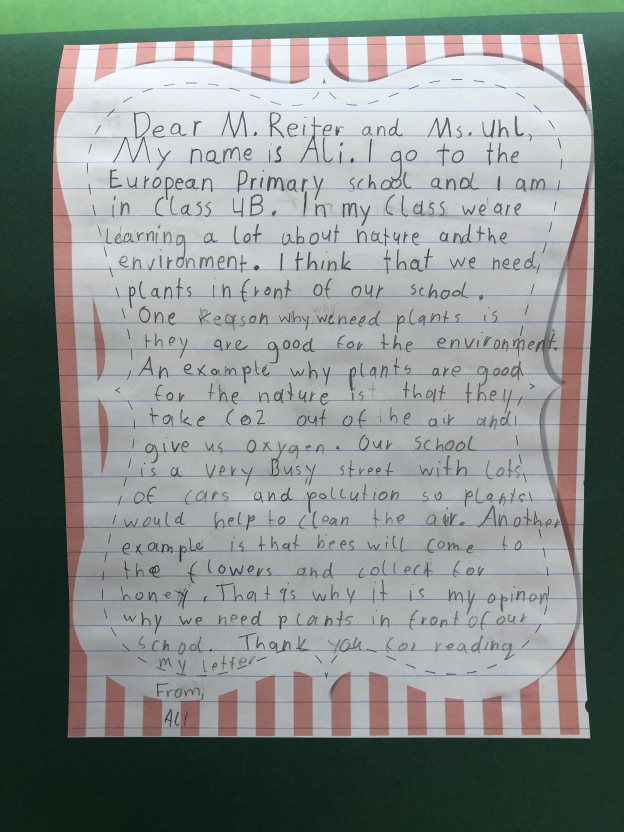 Dear M. Reiter and Ms. Uhl,
My name is Ali. I go to the
European Primary school and I am
in Class 4B. In my Class we are
learning a lot about nature and the
environment. I think that we need
plants in front of our school.
One Reason why we need plants is
they are good for the environment.
An example why plants are good
for the nature is that they
take Co2 out of the air and
give us oxygen. Our school
is a very Busy street with lots
of cars and pollution so plants
would help to clean the air. Another
example is that bees will come to
the flowers and collect for
honey. That is why it is my opinon
why we need plants in front of our
school. Thank you for reading
my letter
From,
Ali